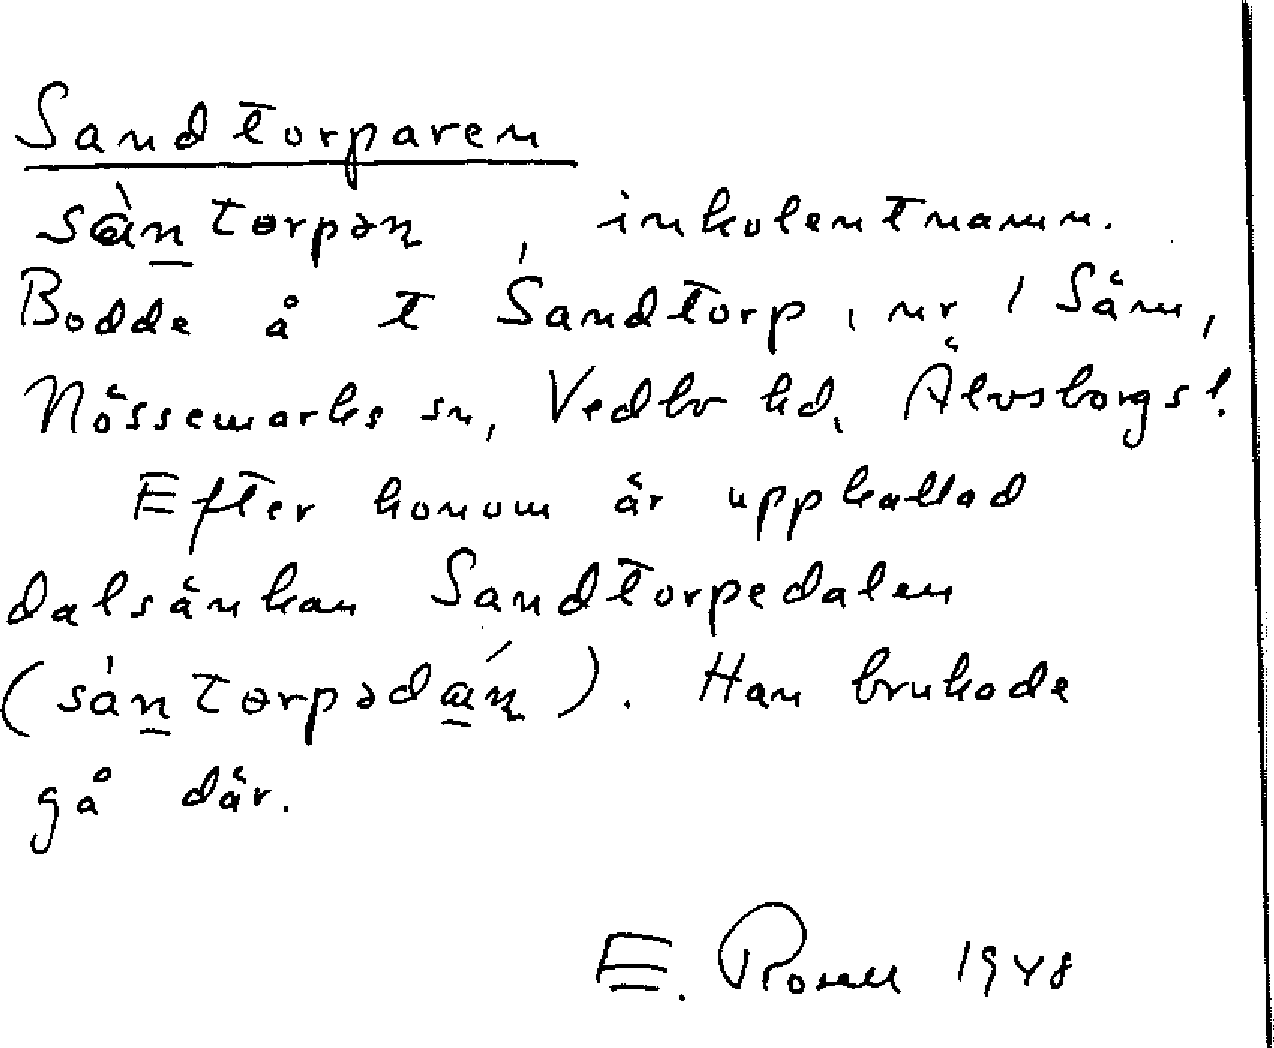 Sandtorparen
sàn̠tɵrpən, inkolentnamn.
Bodde å t Sandtorp, nr 1 Säm,
Nössemarks sn, Vedbo hd, Älvsborgs l.
Efter honom är uppkallad
dalsänkan Sandtorpedalen
(sán̠tɵrpədá̠n). Han brukade
gå där.
E. 1948